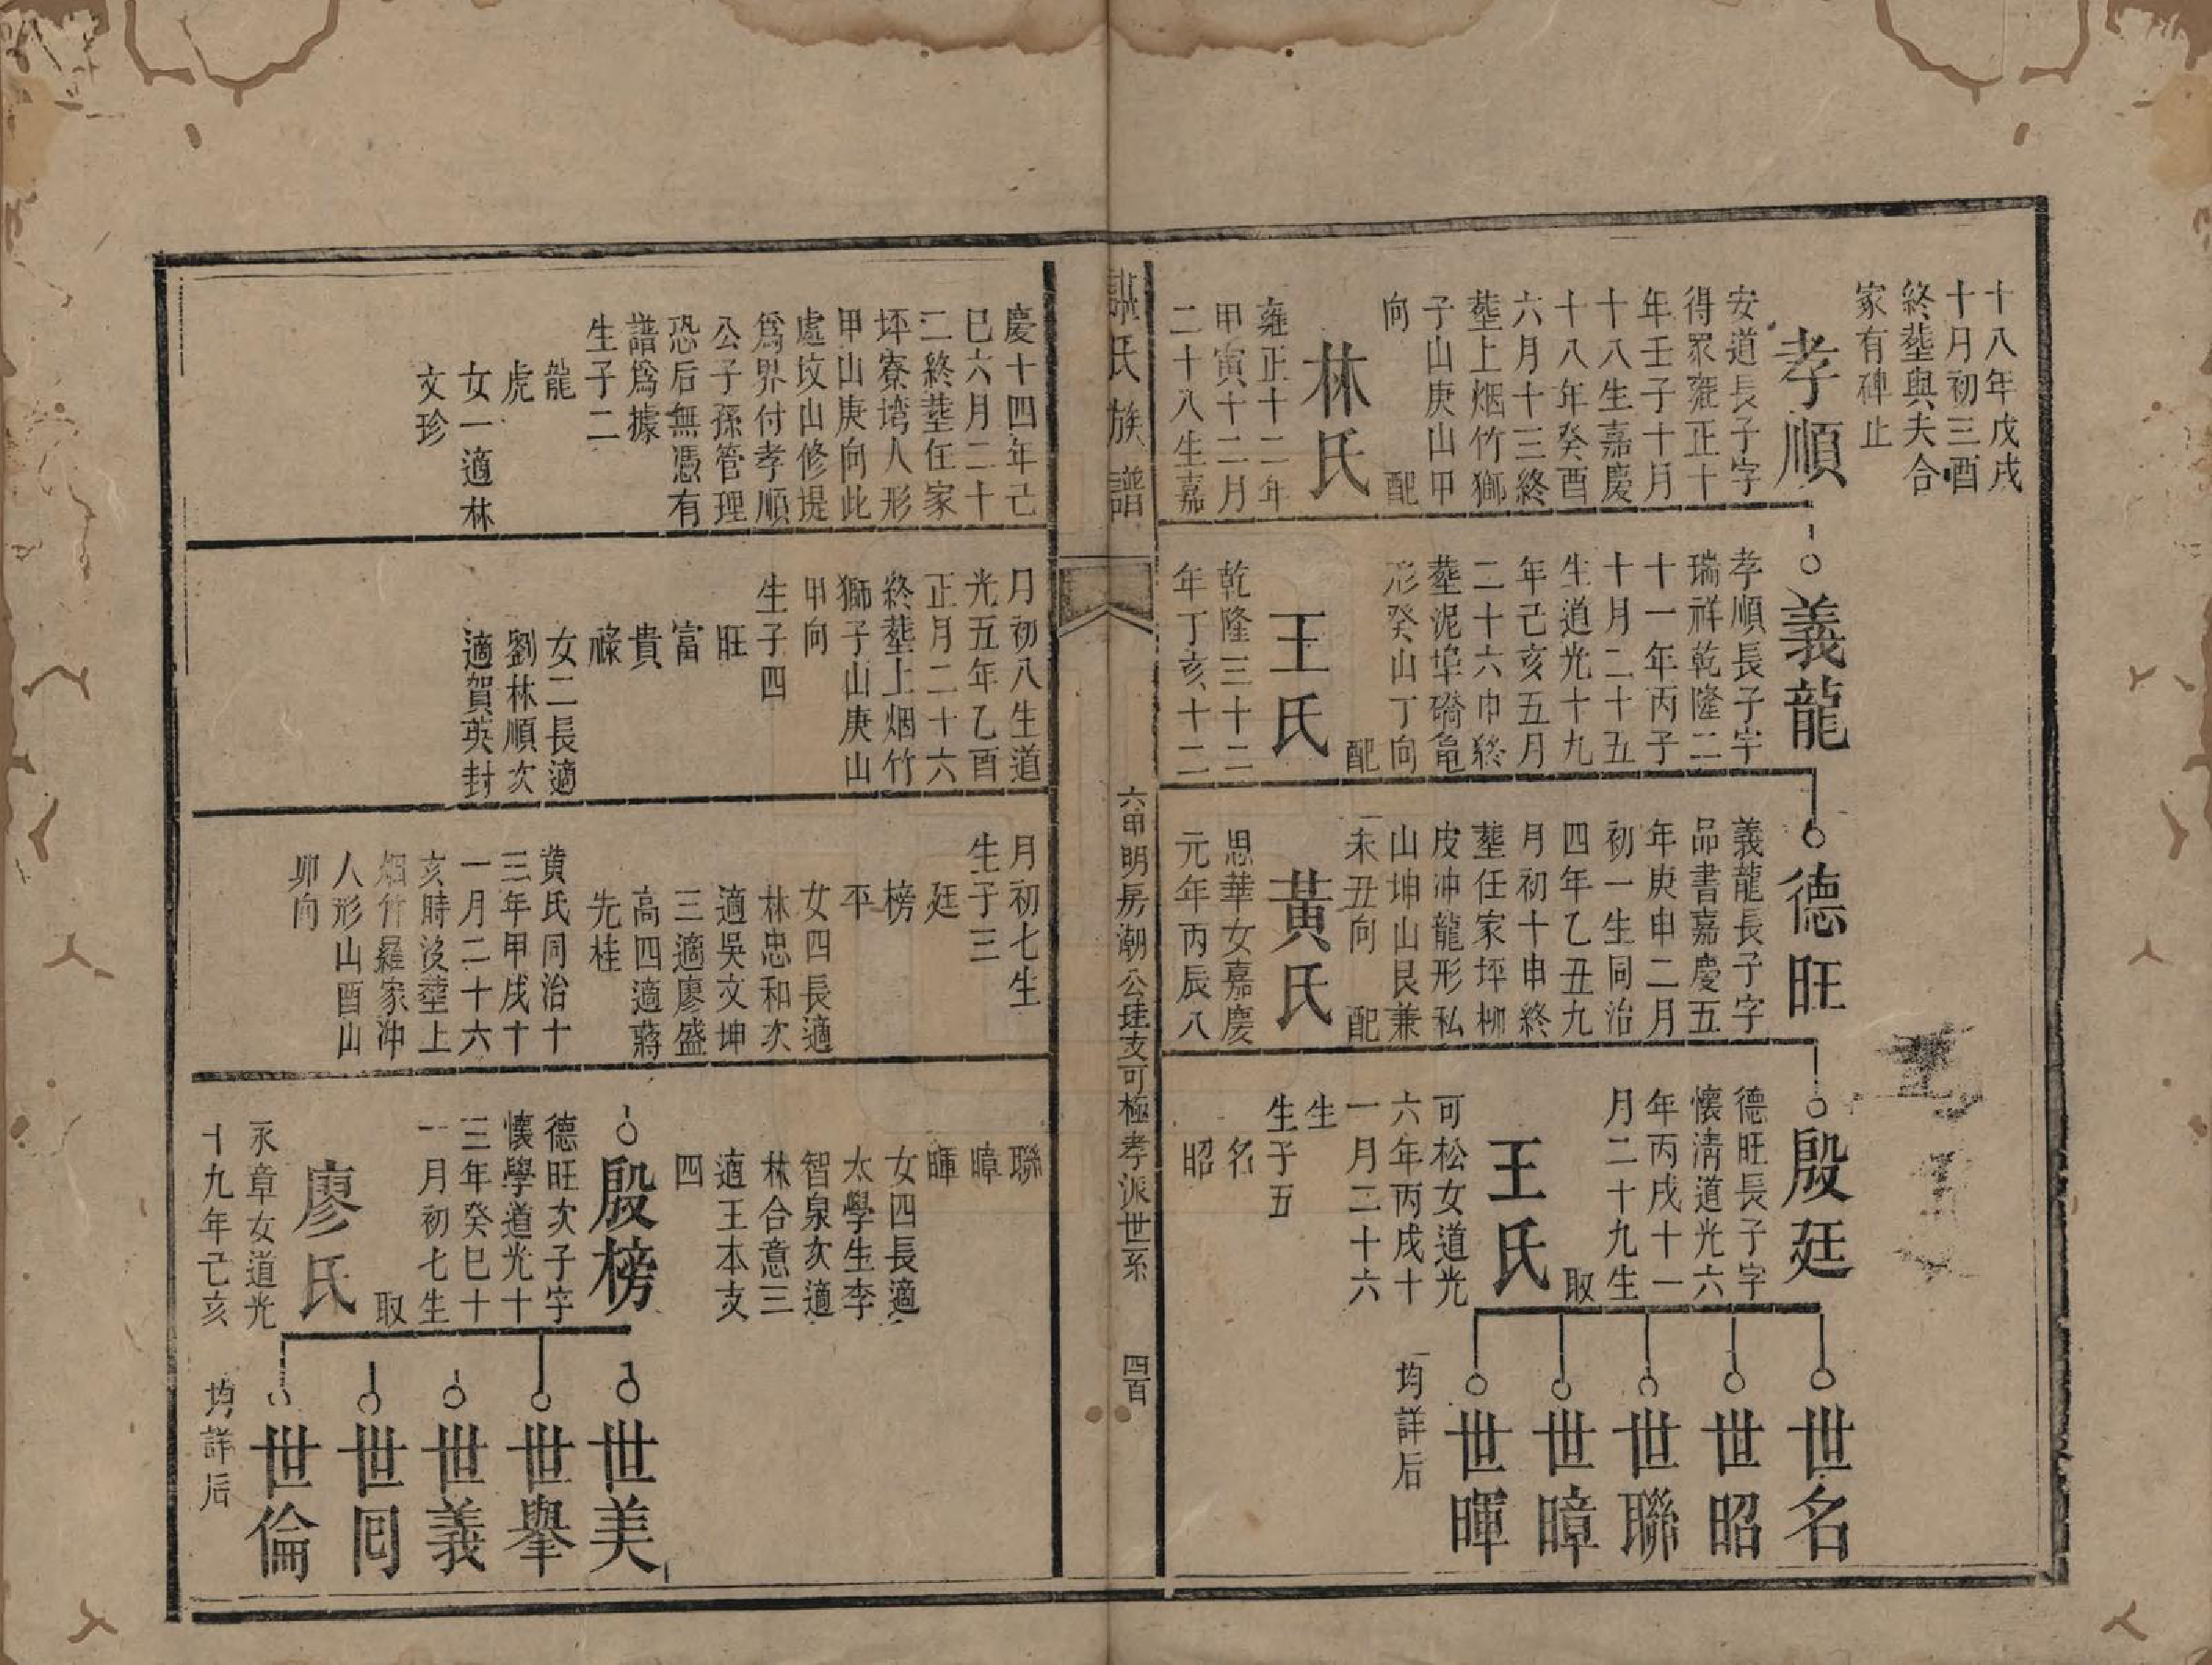 十八年戊戌
十月初三酉
終塟與夫合
家有碑止
孝順
安道長子字
得眾雍正十
年壬子十月
十八生嘉慶
十八年癸酉
六月十三終
塟上烟竹獅
子山庚山甲
向
配
林氏
雍正十二年
甲寅十二月
二十八生嘉
義龍
孝順長子字
瑞祥乾隆二
十一年丙子
十月二十五
生道光十九
年己亥五月
二十六巾終
塟泥埠礄龟
形癸山丁向
配
王氏
乾隆三十二
年丁亥十二
德旺
義龍長子字
品書嘉慶五
年庚申二月
初一生同治
四年乙丑九
月初十申終
塟任家坪柳
皮冲龍形私
山坤山艮兼
未丑向
配
黃氏
思華女嘉慶
元年丙辰八
殷廷
德旺長子字
懷清道光六
年丙戌十一
月二十九生
取
王氏
可松女道光
六年丙戌十
一月二十六
生
生子五
名
昭
世名
世昭
世聯
世暲
世暉
均詳后
氏族譜
六甲明房潮公珪支可極孝派世系
四百
慶十四年己
巳六月二十
二終塟任家
坪寮塆人形
甲山庚向此
處坟山修堤
爲界付孝順
公子孫管理
恐后無憑有
譜爲據
生子二
龍
虎
女一適林
文珍
月初八生道
光五年乙酉
正月二十六
終塟上烟竹
獅子山庚山
甲向
生子四
旺
富
貴
祿
女二長適
劉林順次
適賀英封
月初七生
生子三
廷
榜
平
女四長適
林忠和次
適吳文坤
三適廖盛
高四適蔣
先桂
黃氏同治十
三年甲戌十
一月二十六
亥時沒塟上
烟竹羅家冲
人形山酉山
卯向
聯
暲
暉
女四長適
太學生李
智泉次適
林合意三
適王本支
四
殷榜
德旺次子字
懷學道光十
三年癸巳十
一月初七生
取
廖氏
永章女道光
十九年己亥
世美
世舉
世義
世囘
世倫
均詳后